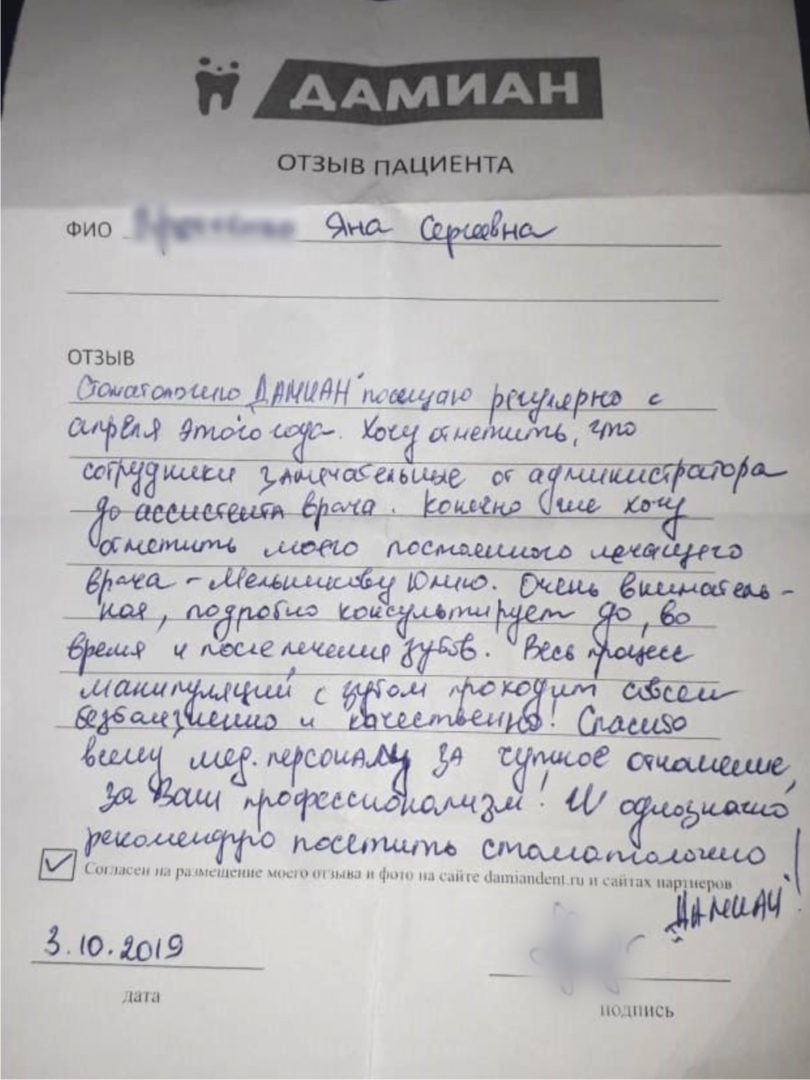 ДАМИАН
ОТЗЫВ ПАЦИЕНТА
ФИО Яна Сергеевна
ОТЗЫВ
Стоматологию „ДАМИАН" посещаю регулярно с
апреля этого года. Хочу отметить, что
сотрудники замечательные от администратора
до ассистента врача. Конечно же хочу
отметить моего постоянного лечащего
врача - Мельникову Юлию. Очень вниматель-
ная, подробно консультирует до, во
время и после лечения зубов. Весь процесс
манипуляций с зубом проходит совсем
безболезненно и качественно! Спасибо
всему мед. персоналу за чуткое отношение,
за Ваш профессионализм! И однозначно
рекомендую посетить стоматологию
Согласен на размещение моего отзыва и фото на сайте damiandent.ru и сайтах партнеров
„ДАМИАН"!
3.10.2019
дата
подпись